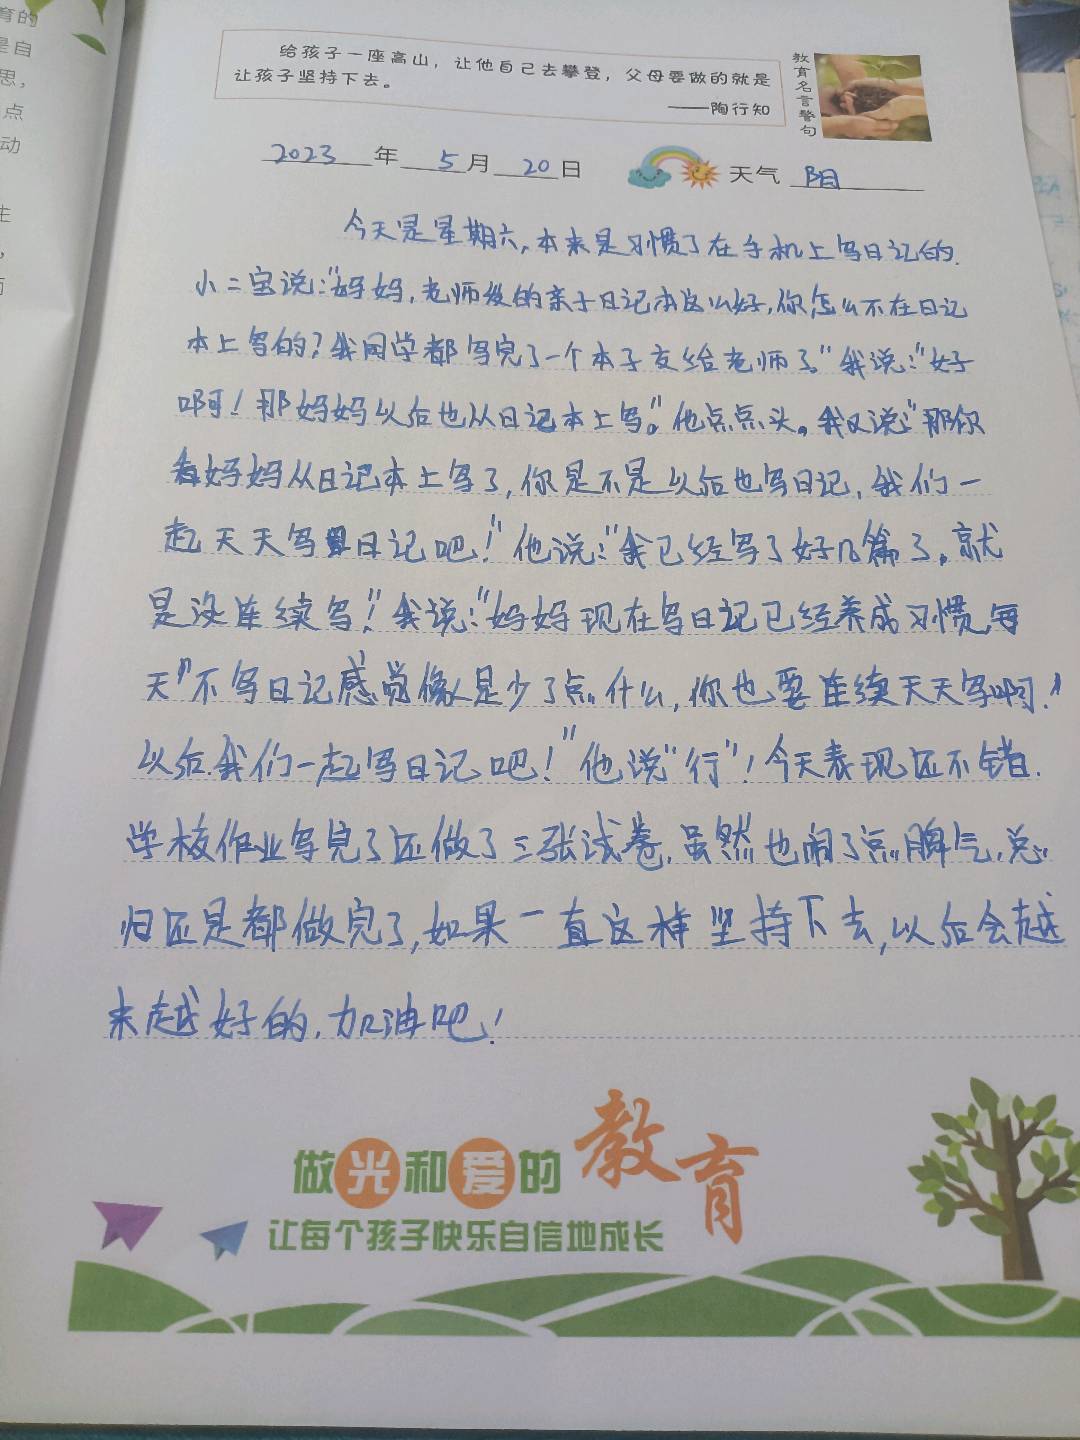 育的
是自
思，
点
动
生
给孩子一座高山，让他自己去攀登，父母要做的就是
让孩子坚持下去。
——陶行知
教育名言警句
2023年5月20日 天气 阳
今天是星期六，本来是习惯了在手机上写日记的.
小二宝说:"妈妈,老师发的亲子日记本这么好,你怎么不在日记
本上写的?我同学都写完了一个本子交给老师了。"我说:"好
啊!那妈妈以后也从日记本上写。"他点点头。我又说:"那你
看妈妈从日记本上写了,你是不是以后也写日记,我们一
起天天写日记吧!"他说:"我已经写了好几篇了。就
是没连续写!"我说:"妈妈现在写日记已经养成习惯,每
天"不写日记感觉像是少了点什么,你也要连续天天写啊!
以后.我们一起写日记吧!"他说"行"!今天表现还不错.
学校作业写完了还做了三张试卷.虽然也闹了点脾气,总
归还是都做完了,如果一直这样坚持下去,以后会越
来越好的,加油吧!
做光和爱的教育
让每个孩子快乐自信地成长